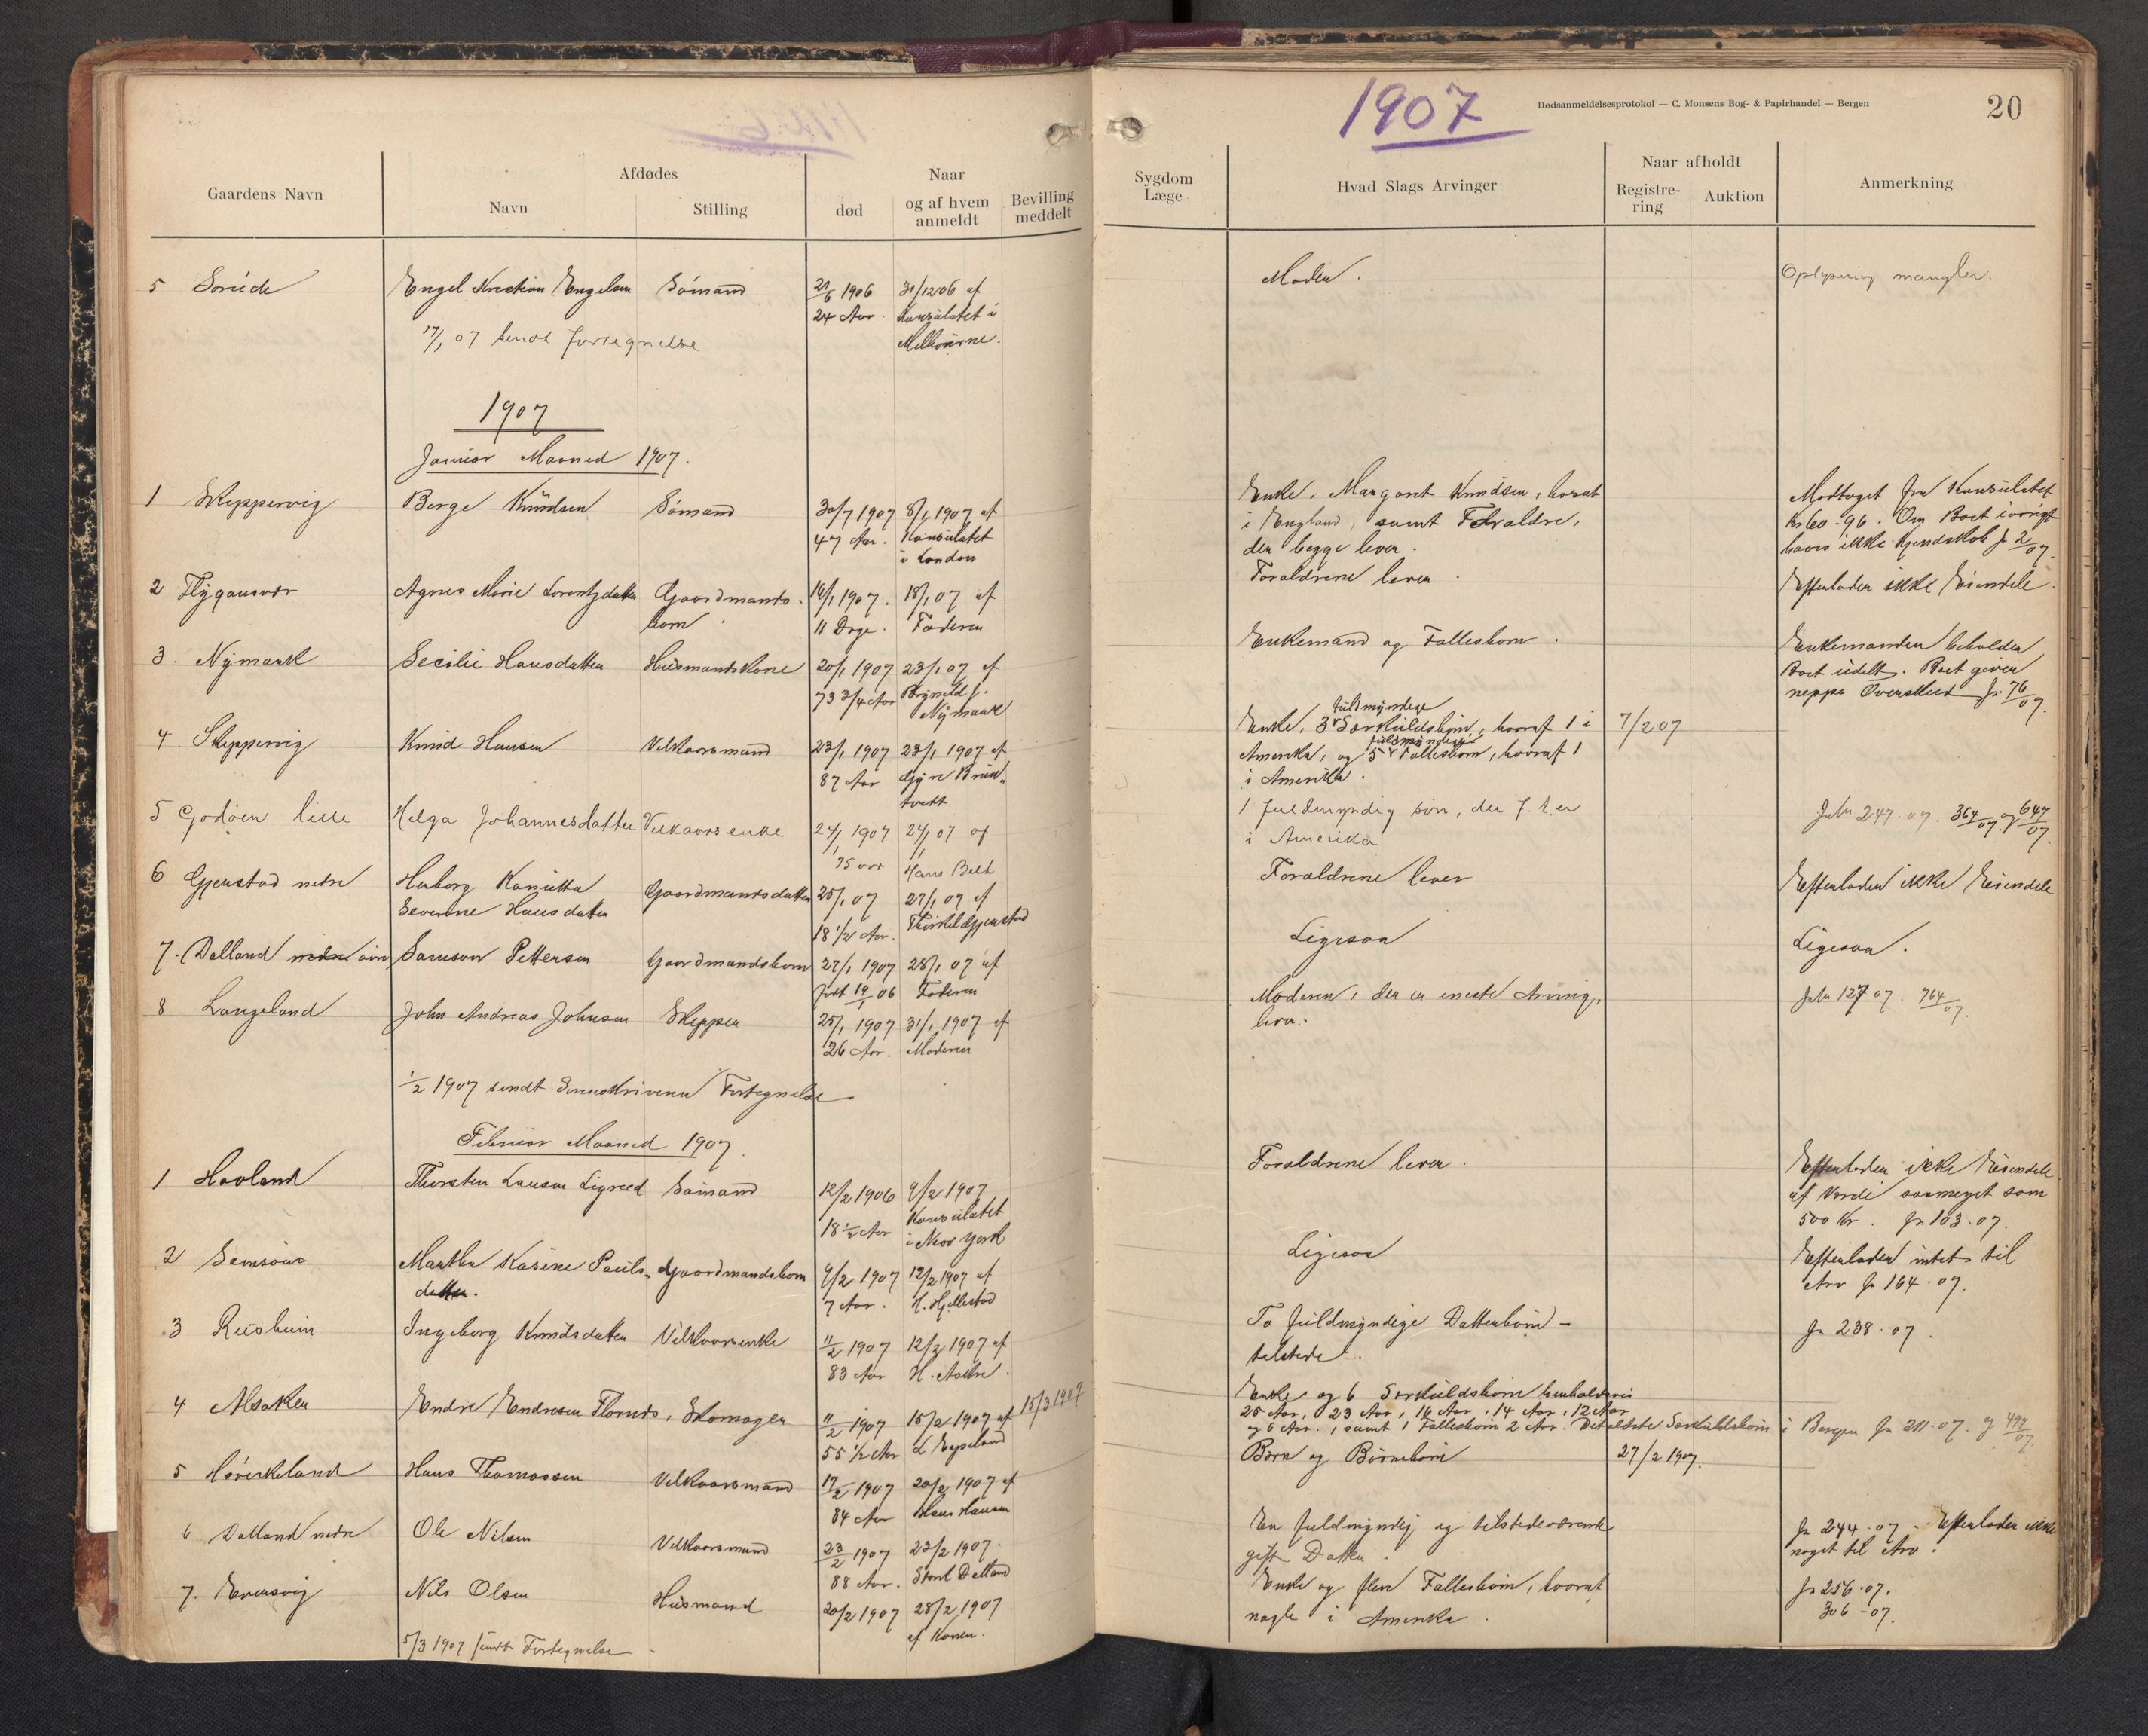 1907
Dødsanmeldelsesprotokol — C. Monsens Bog- & Papirhandel — Bergen
20
Gaardens Navn
Afdødes
Navn
Stilling
Naar
død
og af hvem anmeldt
Bevilling meddelt
Sygdom
Læge
Hvad Slags Arvinger
Naar afholdt
Registrering
Auktion
Anmerkning
5 Engel Kristian Engelsen Sømand 21/6 1906 31/12 06 af Moder. Oplysning mangler.
24 Aar. Konsulatet i
17/1 07 sendt fortegnelse Melbourne.
1907
Januar Maaned 1907.
1 Skeppervig Berge Knudsen Sømand 30/7 1907 8/1 1907 af Enke, Margaret Knudsen, Modtaget fra Konsulatet
47 Aar. Konsulatet i England, samt Forældre, Kr 60-96. Om Boet iøvrigt
i London der begge lever. haves ikke Kjendskab Jr 2/07.
2 Agnes Marie Lorentzdatter Gaardmands- 16/1 1907. 18/1 07 af Forældrene lever. Efterlader ikke Eiendele.
barn 11 Dage. Faderen
3. Nymark Secilie Hansdatter Husmandskone 20/1 1907 23/1 07 af Enkemand og Fællesbørn. Enkemanden beholder
73 3/4 Aar Brynild J. Boet udelt. Boet giver
Nymark neppe Overskud Jr. 76/07.
4. Skeppervig Knud Hansen Vilkaarsmand 23/1 1907 23/1 1907 af Enke, 3 fuldmyndige Særkuldsbørn, hvoraf 1 i 7/2 07
87 Aar Amerika, og 5 fuldmyndige Fællesbørn, hvoraf 1
i Amerika.
5 Godøen lille Helga Johannesdatter Vilkaarsenke 24/1 1907 27/1 07 af 1 fuldmyndig søn, der f. t. er Jr 247.07. 364/07 og 647/07.
75 aar Hans Belt i Amerika
6 Gjerstad nedre Severine Hansdatter Gaardmandsdatter 25/1 07 27/1 07 af Forældrene lever Efterlader ikke Eiendele
18 1/2 Aar.
7. Dalland Samson Pettersen Gaardmandsbarn 27/1 1907 28/1 07 af Ligesaa Ligesaa.
født 06 Faderen
8 Langeland John Andreas Johnsen Skipper 25/1 1907 31/1 1907 af Moderen, der er eneste Arving, Jr 127 07. 764/07.
26 Aar. Moderen lever.
1/2 1907 sendt Sorenskriveren Fortegnelse
Februar Maaned 1907.
1 Havland Thorsten Larsen Sømand 12/2 1906 9/2 1907 Forældrene lever. Efterlader ikke Eiendele
18 1/2 Aar Konsulatet af Værdi saameget som
i New York 500 Kr. Jr 103.07.
2 Martha Karine Pauls- Gaardmandsbarn 9/2 1907 12/2 1907 af Ligesaa Efterlader intet til
datter. 7 Aar. H. Hjellestad Arv Jr 164.07.
3 Ingeborg Knudsdatter Vilkaarsenke 11/2 1907 12/2 1907 af To fuldmyndige Datterbørn - Jr 238.07.
83 Aar tilstede.
4 Alsaker Endre Endresen Skomager 11/2 1907 15/2 1907 af 15/3 1907 Enke og 6 Særkuldsbørn henholdsvis
55 1/2 Aar 25 Aar, 23 Aar, 16 Aar, 14 Aar, 12 Aar
og 6 Aar, samt 1 Fællesbørn 2 Aar. Det ældste Særkuldsbørn i Bergen Jr 211.07. og
5 Hans Thomassen Vilkaarsmand 17/2 1907 20/2 1907 af Børn og Børnebørn 27/2 1907.
84 Aar Hans Hansen
6 Dalland nedre Ole Nilsen Vilkaarsmand 23/2 1907 23/2 1907. En fuldmyndig og tilstedeværende Jr 244.07. Efterlader ikke
88 Aar. gift Datter. noget til Arv.
7. Nils Olsen Husmand 20/2 1907 28/2 1907 Enke og flere Fællesbørn, hvoraf Jr 256.07.
af Konen. nogle i Amerika. 306-07.
5/3 1907 sendt Fortegnelse